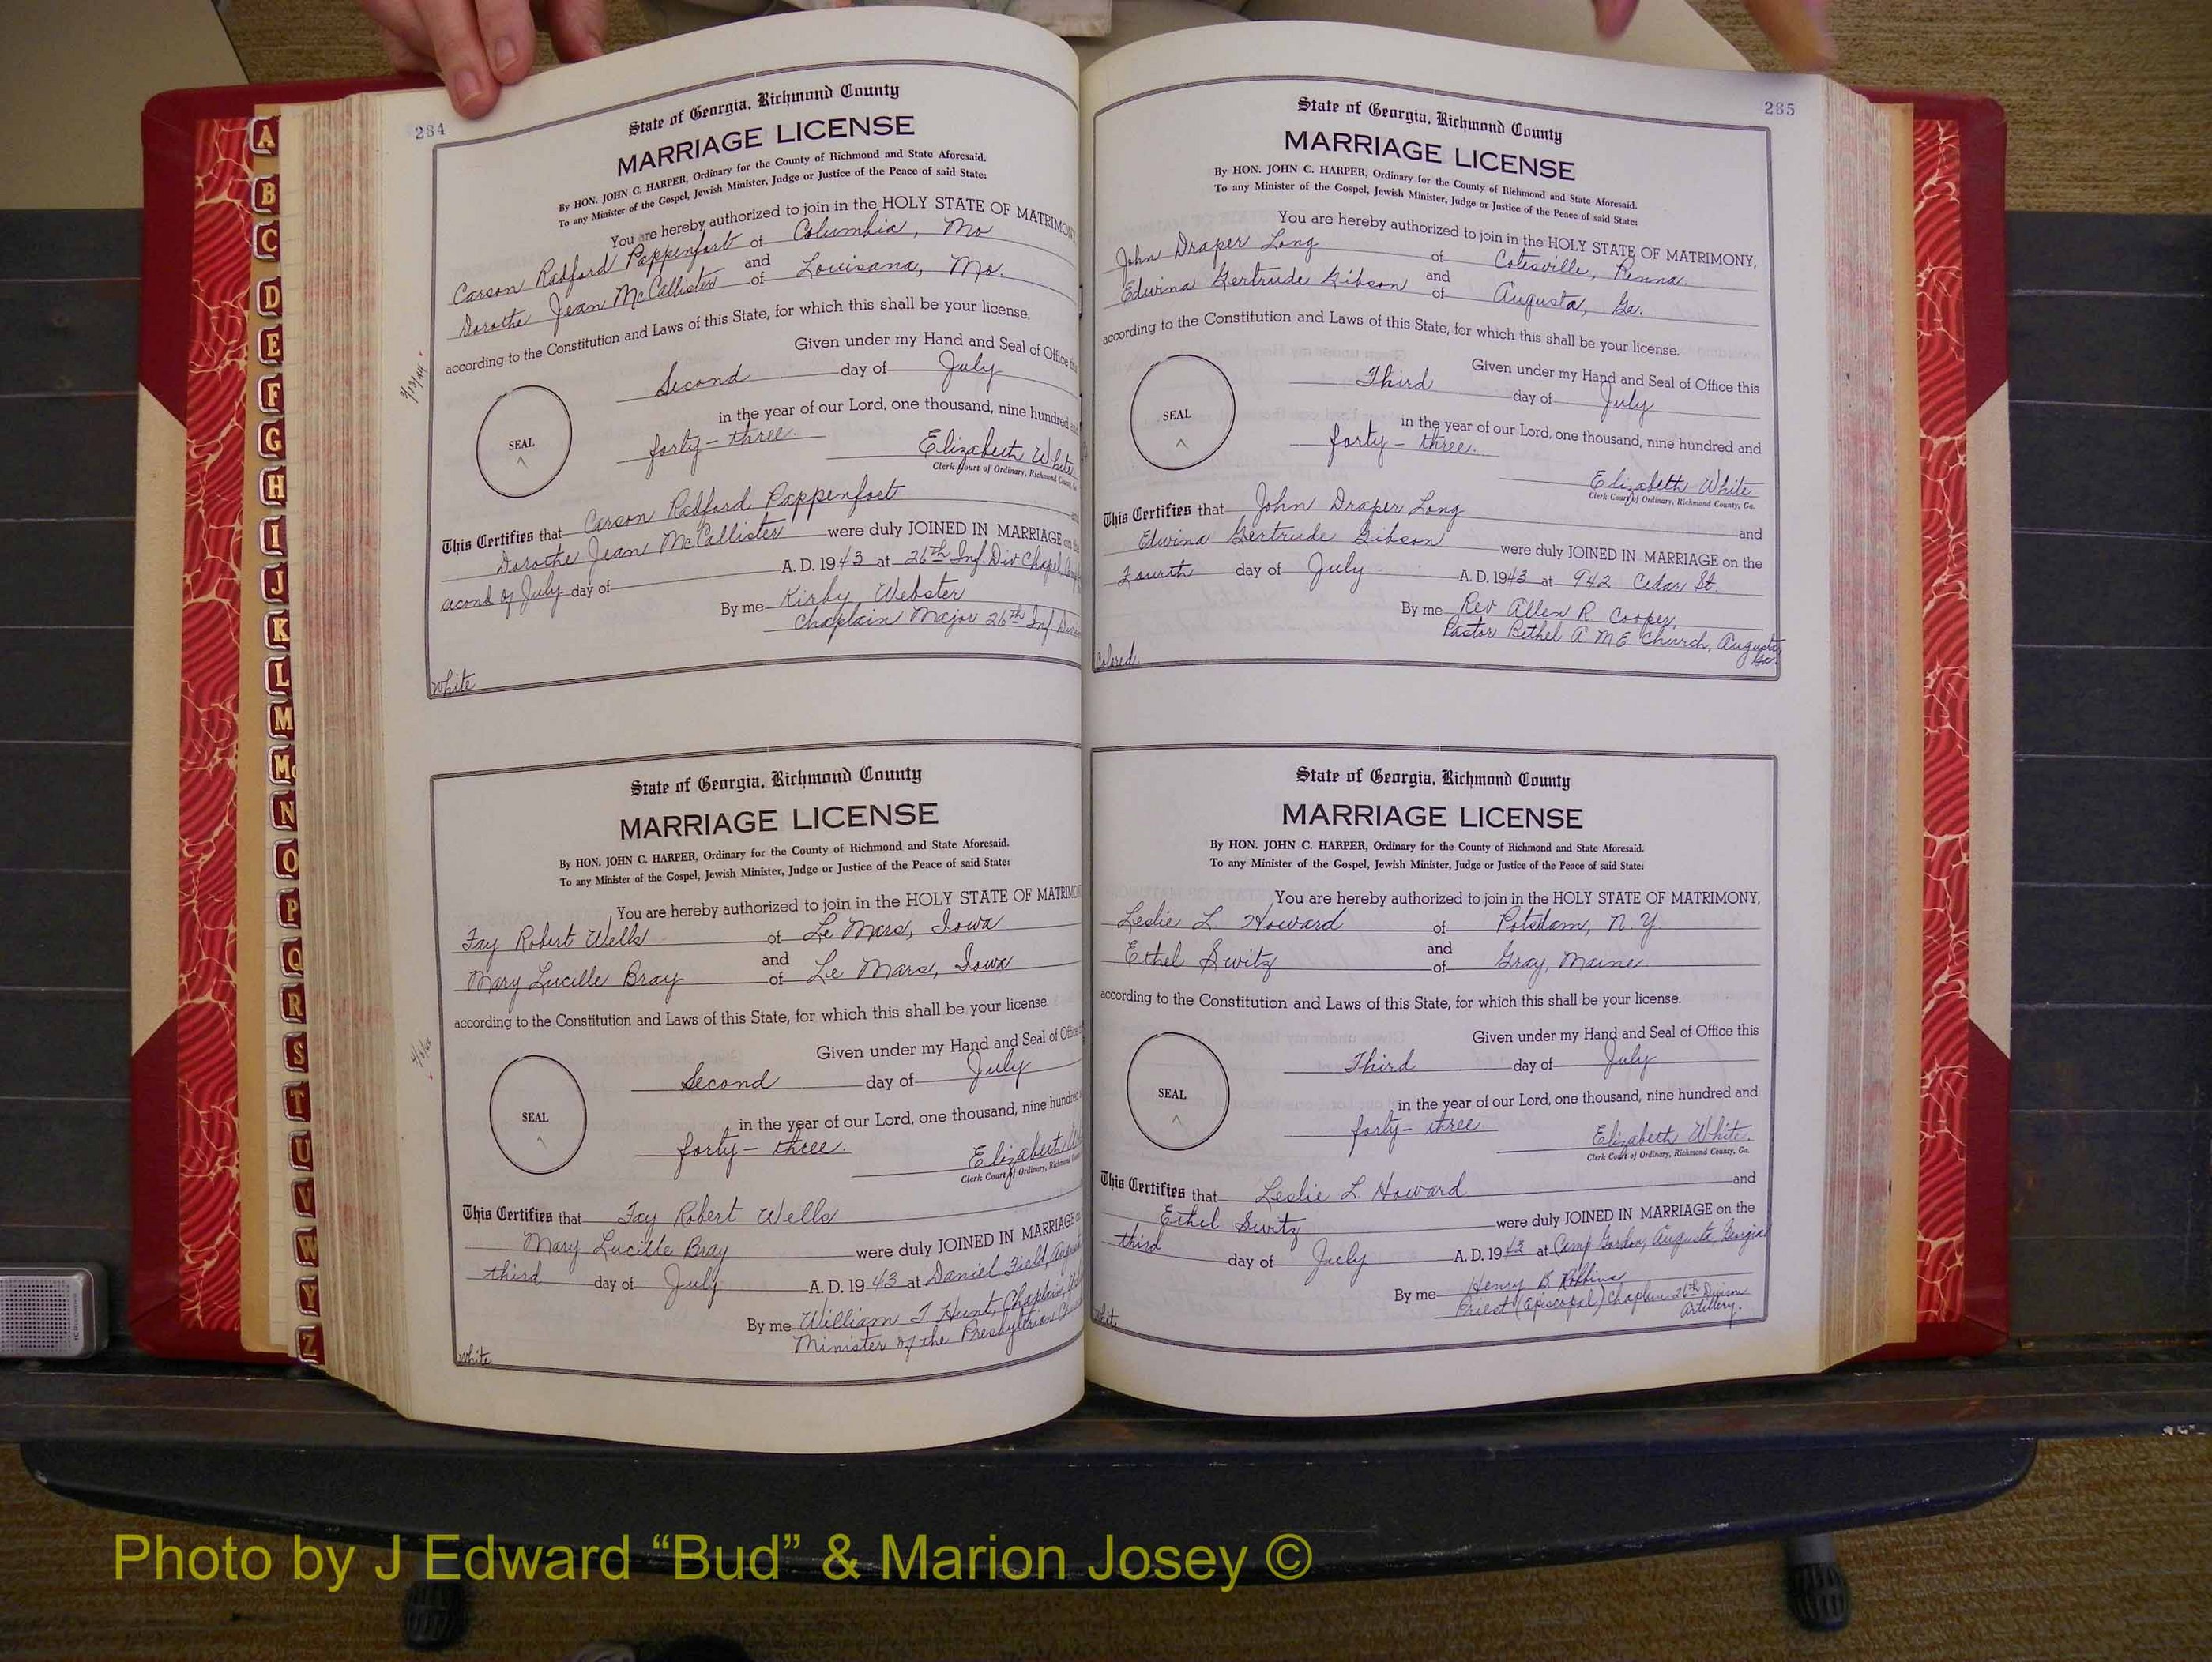 284
State of Georgia, Richmond County
MARRIAGE LICENSE
By HON. JOHN C. HARPER, Ordinary for the County of Richmond and State Aforesaid.
To any Minister of the Gospel, Jewish Minister, Judge or Justice of the Peace of said State:
You are hereby authorized to join in the HOLY STATE OF MATRIMON
Carson Radford Pappenfort of Columbia, Mo
and
Dorothe Jean McCallister of Louisana, Mo.
according to the Constitution and Laws of this State, for which this shall be your license.
Given under my Hand and Seal of Office this
Second day of July
in the year of our Lord, one thousand, nine hundred
forty-three.
SEAL
Elizabeth White
Clerk Court of Ordinary, Richmond County, Ga
This Certifies that Carson Radford Pappenfort
Dorothe Jean McCallister were duly JOINED IN MARRIAGE on
econd of July day of A. D. 1943 at 26th Inf. Div Chapel,
By me Kirby Webster
Chaplain Major 26th Inf
White
State of Georgia, Richmond County
MARRIAGE LICENSE
By HON. JOHN C. HARPER, Ordinary for the County of Richmond and State Aforesaid.
To any Minister of the Gospel, Jewish Minister, Judge or Justice of the Peace of said State:
You are hereby authorized to join in the HOLY STATE OF MATRIMO
Fay Robert Wells of Le Mars, Iowa
and
Mary Lucille Bray of Le Mars, Iowa
according to the Constitution and Laws of this State, for which this shall be your license.
Given under my Hand and Seal of Office
Second day of July
in the year of our Lord, one thousand, nine hundred
forty-three.
SEAL
Elizabeth
Clerk Court of Ordinary, Richmond
This Certifies that Fay Robert Wells
Mary Lucille Bray were duly JOINED IN MARRIAGE
third day of July A. D. 1943 at Daniel Field,
By me William T Hunt, Chaplain,
Minister of the Presbyterian
White
285
State of Georgia, Richmond County
MARRIAGE LICENSE
By HON. JOHN C. HARPER, Ordinary for the County of Richmond and State Aforesaid.
To any Minister of the Gospel, Jewish Minister, Judge or Justice of the Peace of said State:
You are hereby authorized to join in the HOLY STATE OF MATRIMONY,
John Draper Long of Cotesville, Penna.
and
Edwina Gertrude Gibson of Augusta, Ga.
according to the Constitution and Laws of this State, for which this shall be your license.
Given under my Hand and Seal of Office this
Third day of July
in the year of our Lord, one thousand, nine hundred and
forty-three.
SEAL
Elizabeth White
Clerk Court of Ordinary, Richmond County, Ga.
This Certifies that John Draper Long and
Edwina Gertrude Gibson were duly JOINED IN MARRIAGE on the
Fourth day of July A. D. 1943 at 942 Cedar St.
By me Rev Allen R. Cooper,
Pastor Bethel A M E Church, Augusta,
Ga.
Colored
State of Georgia, Richmond County
MARRIAGE LICENSE
By HON. JOHN C. HARPER, Ordinary for the County of Richmond and State Aforesaid.
To any Minister of the Gospel, Jewish Minister, Judge or Justice of the Peace of said State:
You are hereby authorized to join in the HOLY STATE OF MATRIMONY,
Leslie L. Howard of Potsdam, N. Y.
and
Ethel Switz of Gray, Maine
according to the Constitution and Laws of this State, for which this shall be your license.
Given under my Hand and Seal of Office this
Third day of July
in the year of our Lord, one thousand, nine hundred and
forty-three
SEAL
Elizabeth White.
Clerk Court of Ordinary, Richmond County, Ga.
This Certifies that Leslie L. Howard and
Ethel Switz were duly JOINED IN MARRIAGE on the
third day of July A. D. 1943 at Camp Gordon, Augusta, Georgia
By me Henry B Robbins
Priest (Episcopal) Chaplain 26th Division
Artillery.
White
A
B
C
D
E
F
G
H
I
J
K
L
M
Mc
N
O
P
Q
R
S
T
U
V
W
Y
Z
Photo by J Edward “Bud” & Marion Josey ©